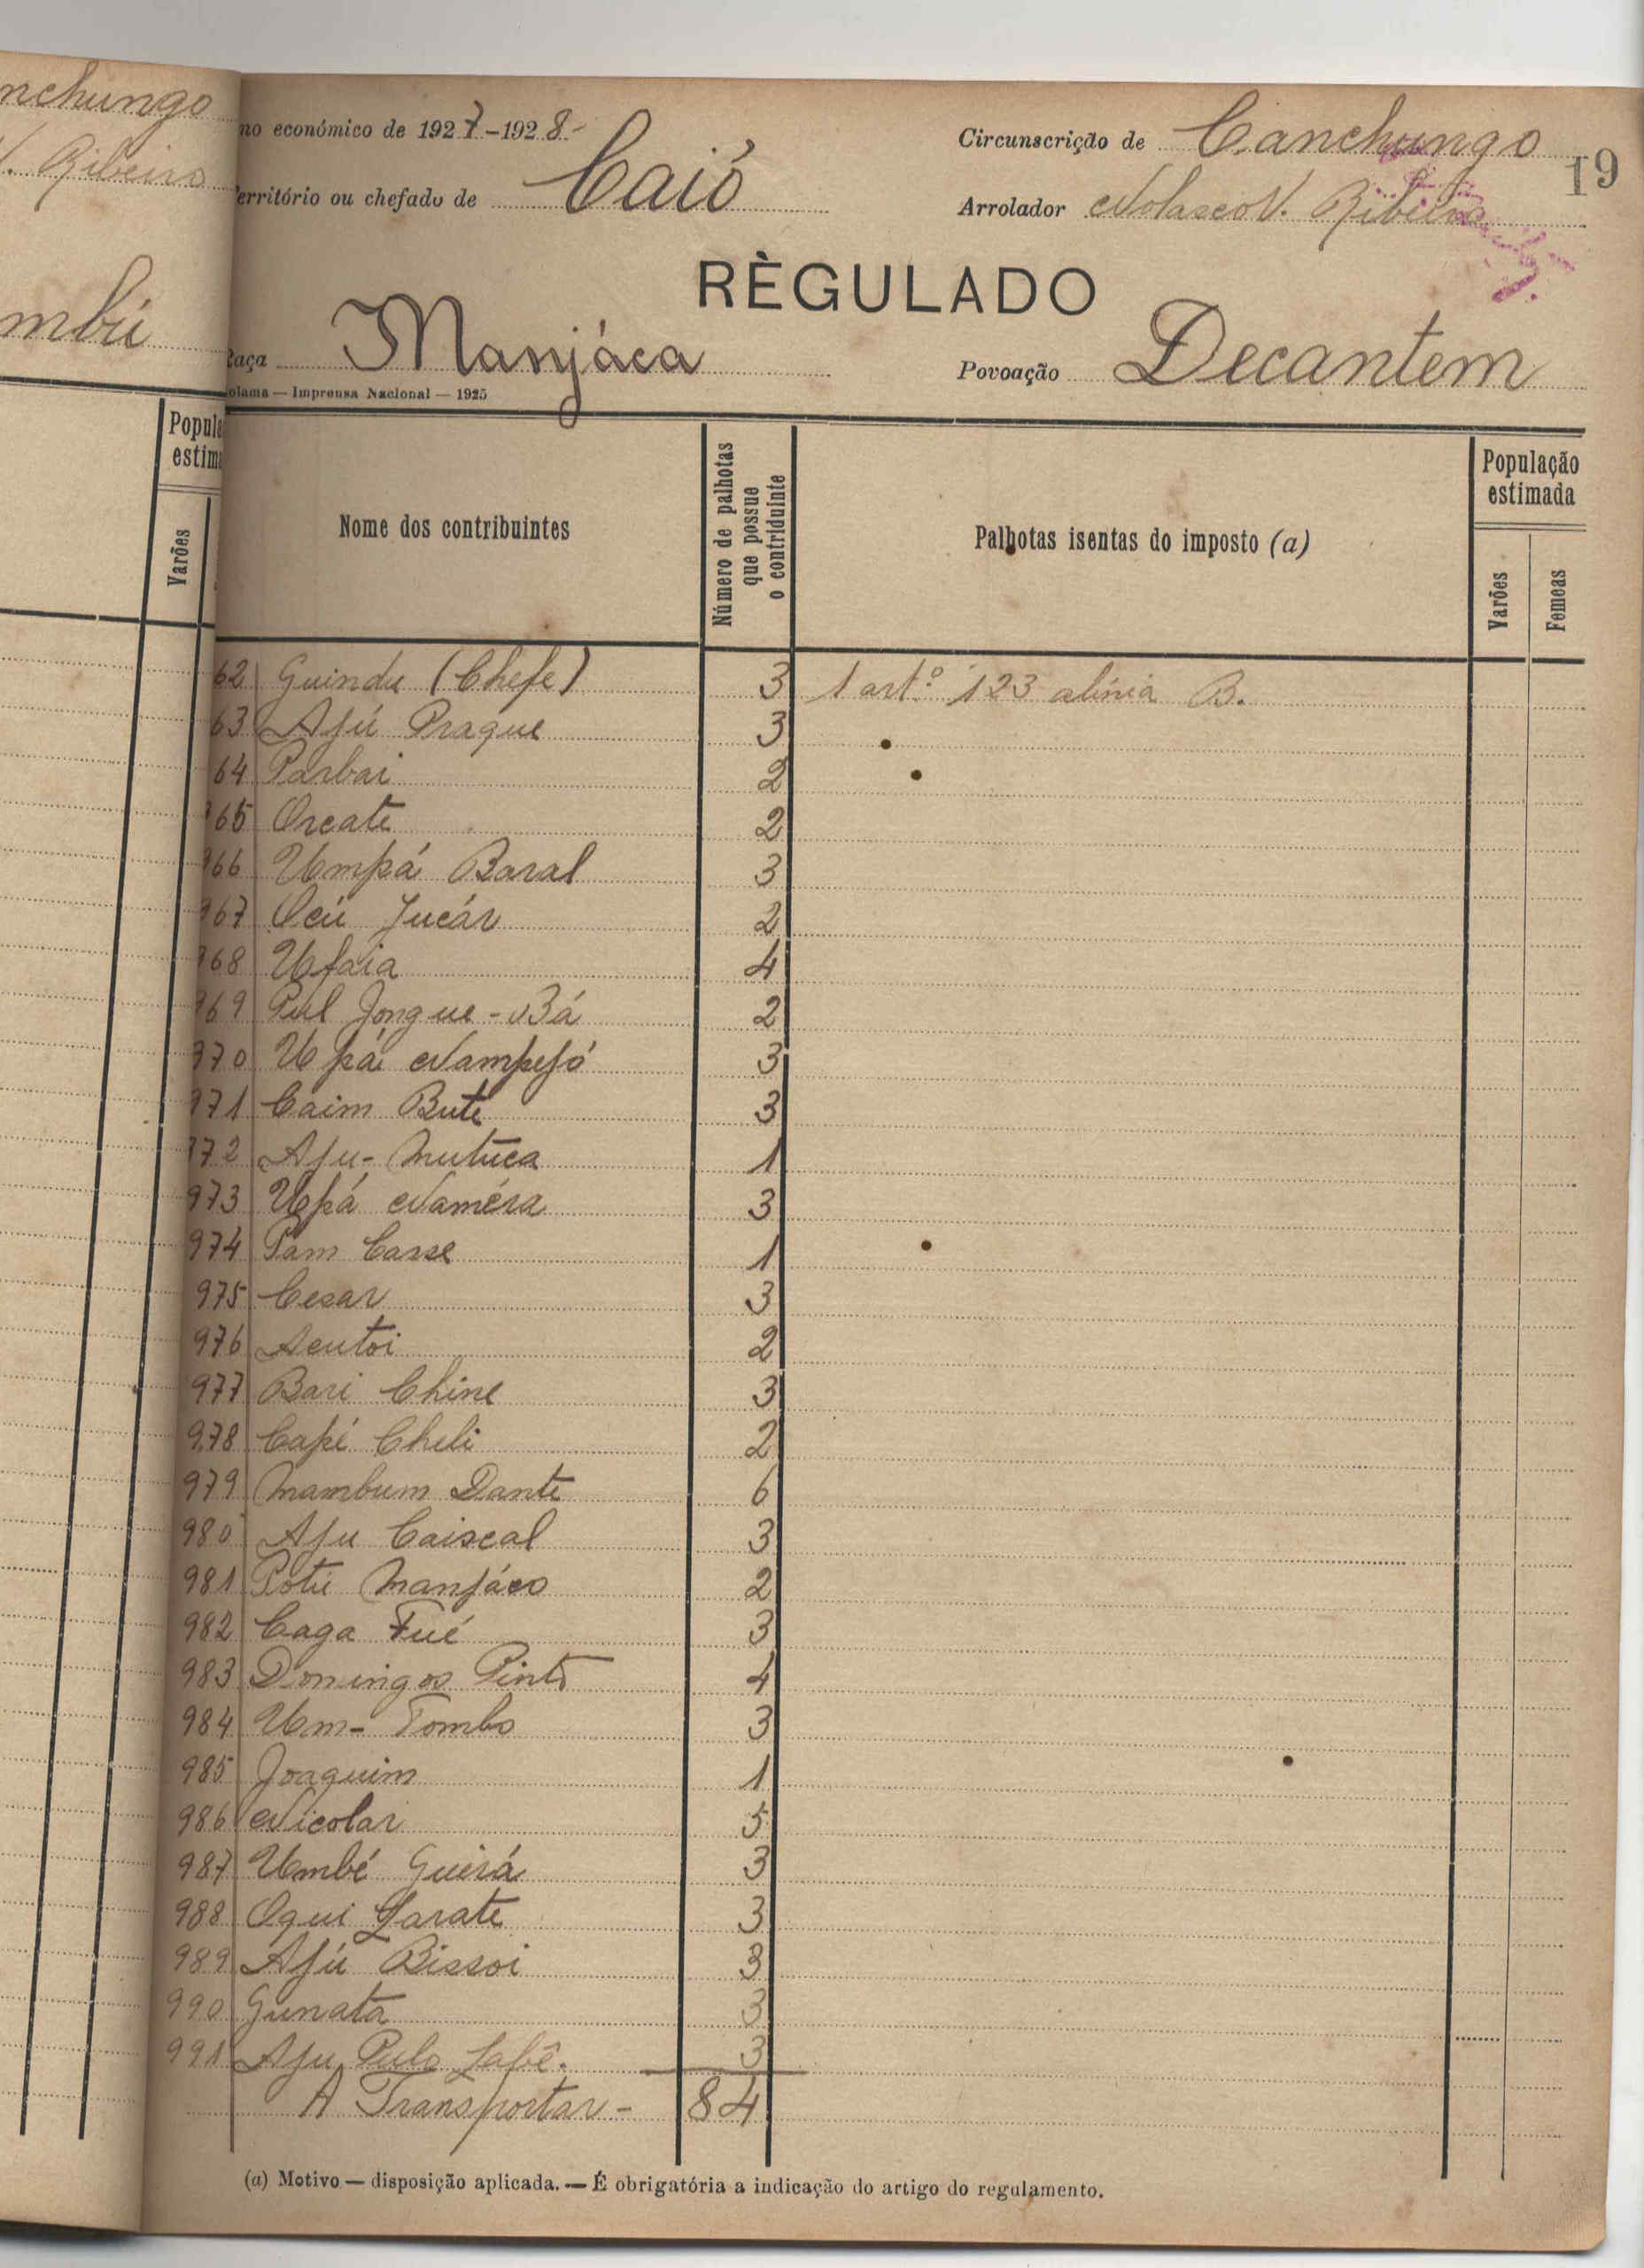 nchungo
V. Ribeiro
mbú
Popula
estima
Varões
no económico de 1927-1928-
Circunscrição de Canchungo
19
erritório ou chefado de Caió
Arrolador Nolasco V. Ribeiro
RÈGULADO
Raça Manjáca
Povoação Decantem
olama — Imprensa Nacional — 1925
Nome dos contribuintes
Número de palhotas que possue o contriduinte
Palhotas isentas do imposto (a)
População estimada
Varões
Femeas
62 Guindu (Chefe) 3 1 artº 123 alínia B.
63 Ajú Praque 3
64 Parbai 2
965 Orcate 2
966 Umpá Baral 3
967 Ocú Jucár 2
968 Ufaia 4
969 Pul Jongue-Bá 2
970 Upá Nampejó 3
971 Caim Bute 3
972 Aju-Mutuca 1
973 Upá Naméra 3
974 Pam Casse 1
975 Cesar 3
976 Acutoi 2
977 Bari Chine 3
978 Capé Cheli 2
979 Mambum Dante 6
980 Aju Caiscal 3
981 Potú Manjáco 2
982 Caga Fué 3
983 Domingos Pinto 4
984 Um-Tombo 3
985 Joaquim 1
986 Nicolar 5
987 Umbé Guirá 3
988 Oqui Larate 3
989 Ajú Bissoi 3
990 Gunata 3
991 Aju Pulo Labê. 3
A Transportar- 84
(a) Motivo — disposição aplicada. — É obrigatória a indicação do artigo do regulamento.